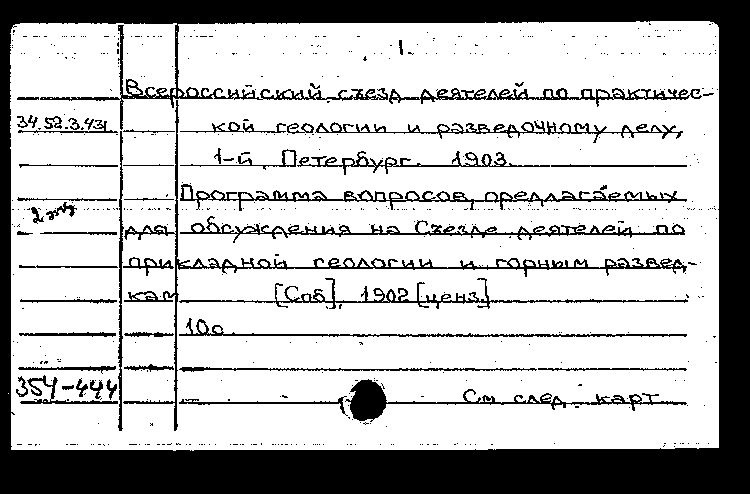 1.
Всероссийский съезд деятелей по практичес-
34.52.3.431 кой геологии и разведочному делу,
1-й. Петербург. 1903.
Программа вопросов, предлагаемых
2 экз
для обсуждения на Съезде деятелей по
прикладной геологии и горным развед-
кам [Спб], 1902 [ценз]
10с.
354-444
См. след. карт.